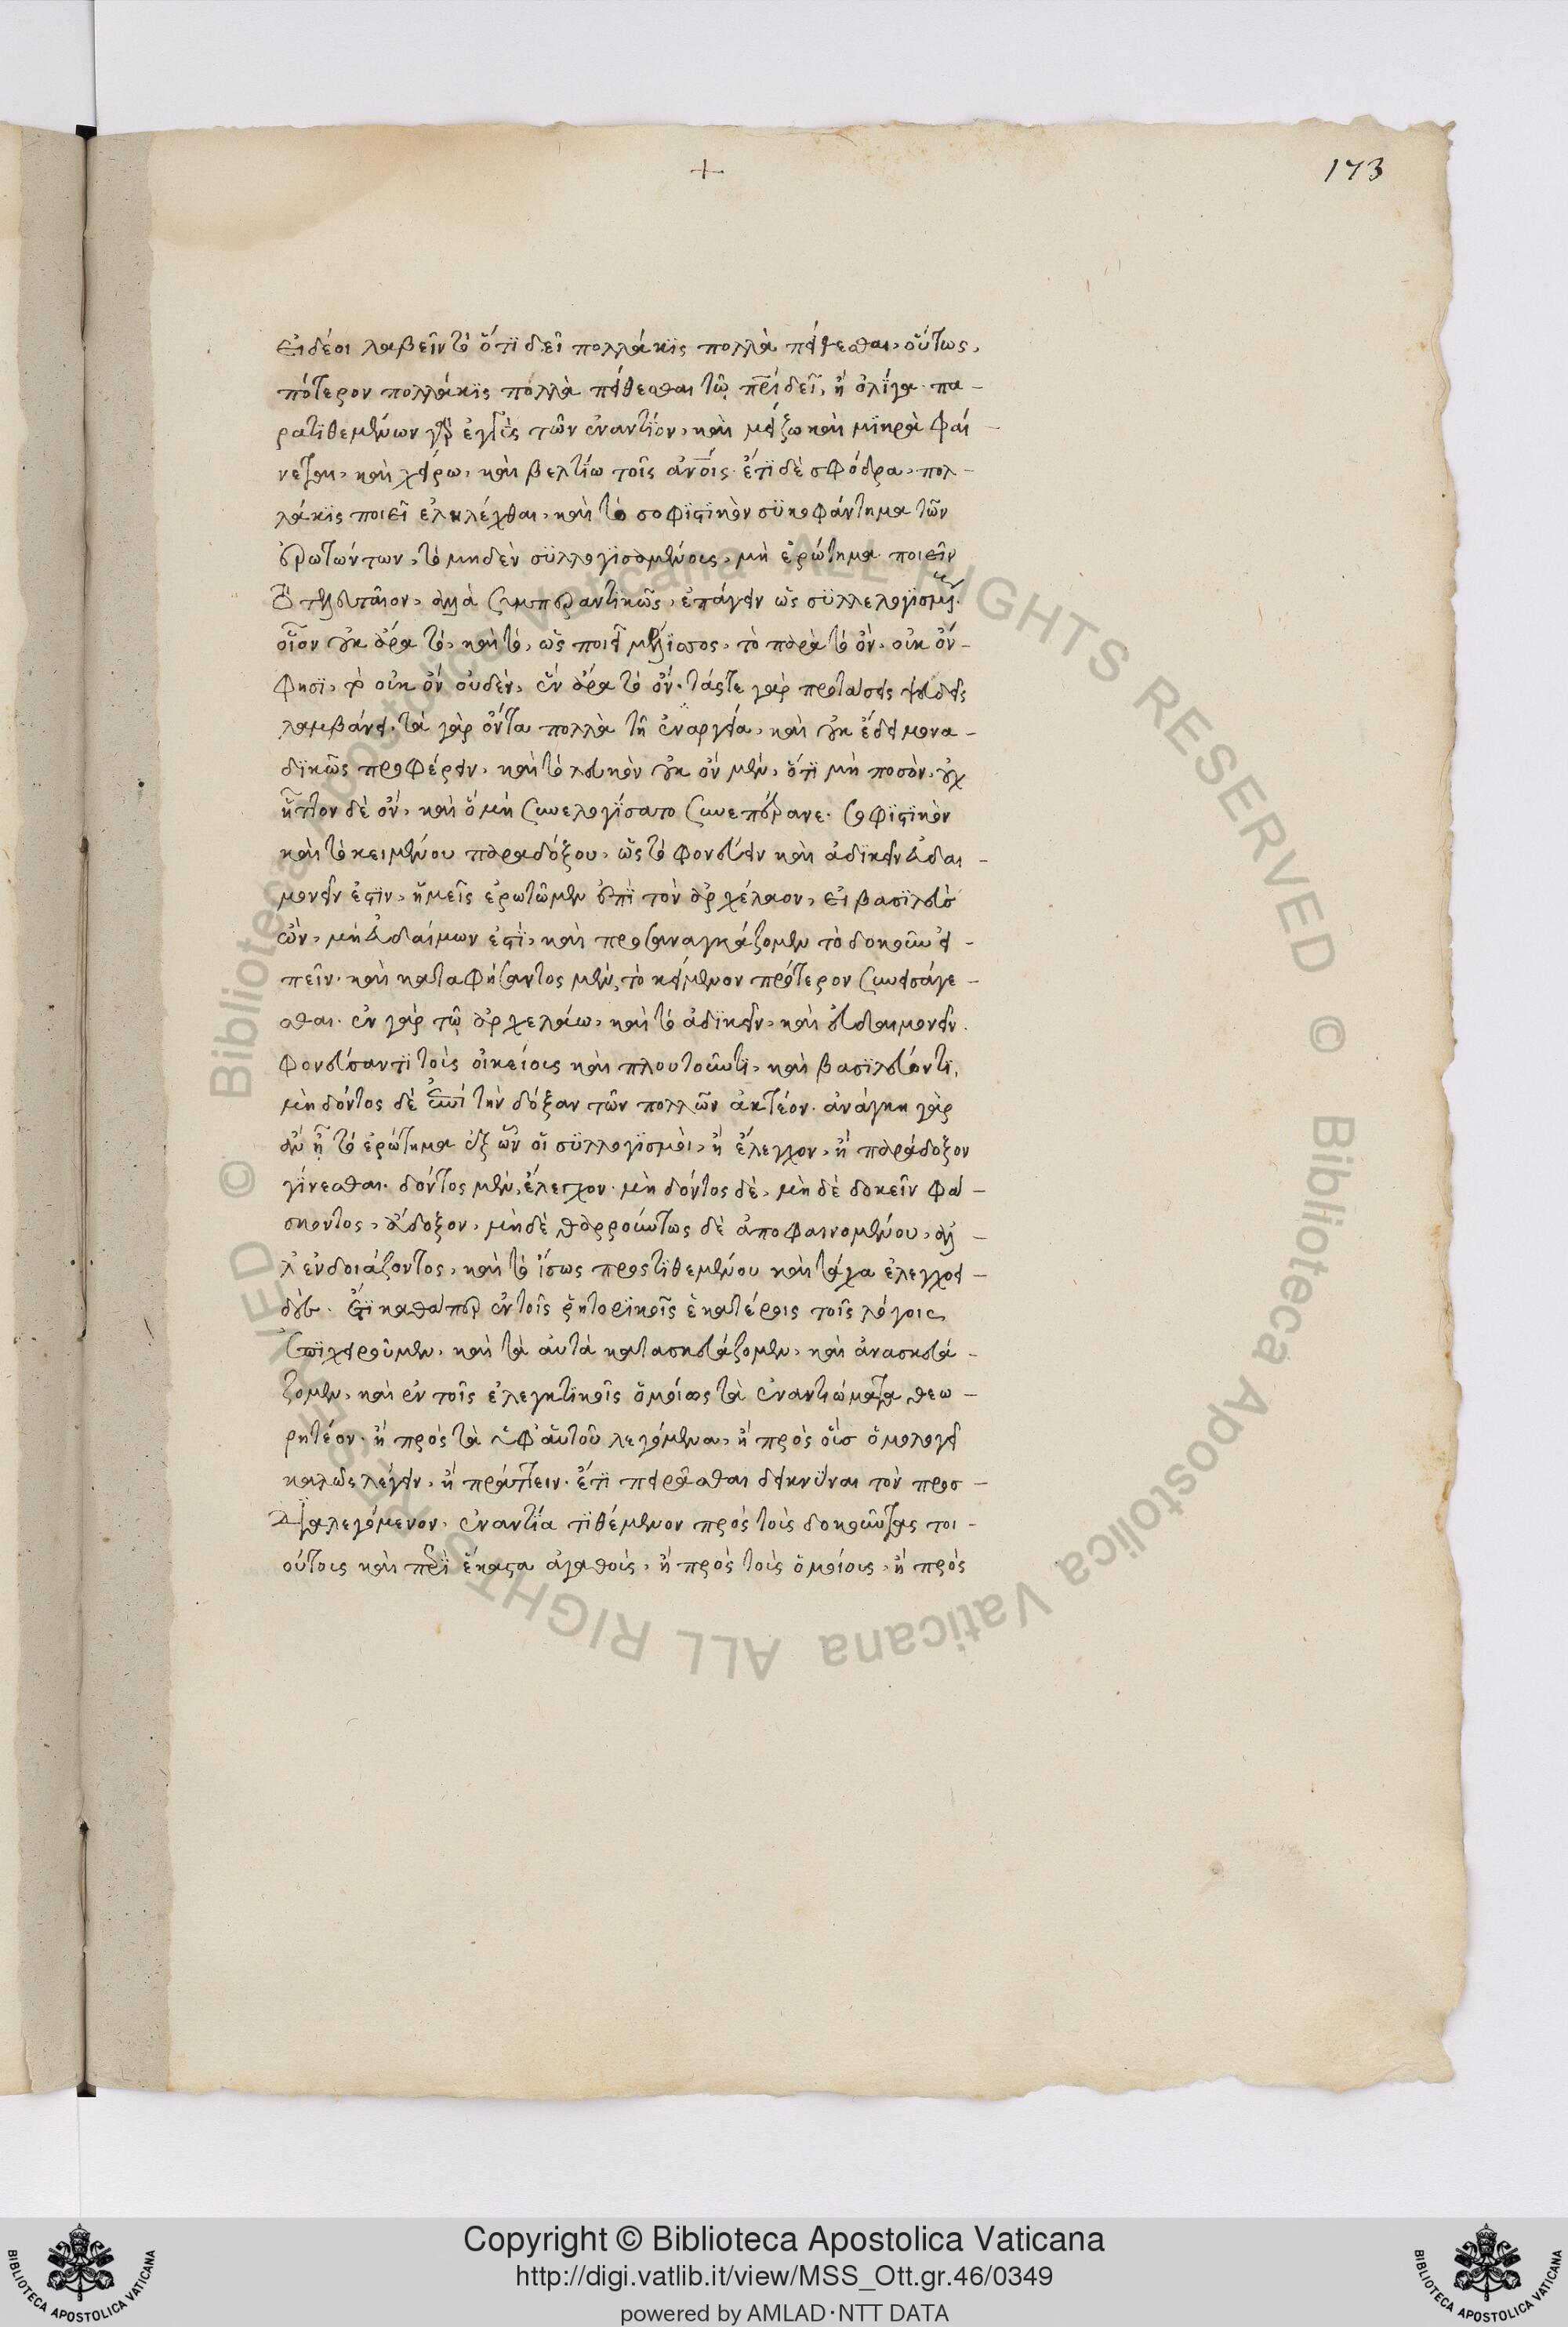 +
173
εἰ δέοι λαβεῖν τὸ ὅτι δεῖ πολλάκις πολλὰ πείθεσθαι, οὕτως,
πότερον πολλάκις πολλὰ πείθεσθαι τῷ πρὶ δεῖ, ἢ ὀλίγα· πα-
ρατιθεμένων γὰρ ἐγγὺς τῶν ἐναντίον, καὶ μείζω καὶ μικρὰ φαί-
νεται, καὶ χείρω, καὶ βελτίω τοῖς ἀνοις· ἔτι δὲ σφόδρα, πολ-
λάκις ποιεῖ ἐληλέγχθαι, καὶ τὸ σοφιστικὸν συκοφάντημα τῶν
ἐρωτώντων, τὸ μηδὲν συλλογισομένους, μὴ ἐρώτημα ποιεῖν
τὸ τελευταῖον, ἀλλὰ συμπεραντικῶς, ἐπάγειν ὡς συλλελογισμέν
οἷον οὐκ ἄρα τὸ, καὶ τὸ, ὡς ποιεῖ μέλισσος, τὸ παρὰ τὸ ὂν, οὐκ ὂν
φησὶ, τὸ οὐκ ὂν οὐδὲν, ἓν ἄρα τὸ ὄν· τάς τε γὰρ προτάσεις ψευδεῖς
λαμβάνει· τὰ γὰρ ὄντα πολλὰ τῇ ἐναργείᾳ, καὶ οὐκ ἔδει μονα-
δικῶς προφέρειν, καὶ τὸ λευκὸν οὐκ ὂν μὲν, ὅτι μὴ ποσὸν, οὐχ
ἧττον δὲ ὂν, καὶ ὃ μὴ συνελογίσατο συνεπέρανε. σοφιστικὸν
καὶ τὸ κειμένου παραδόξου, ὡς τὸ φονεύειν καὶ ἀδικεῖν εὐδαι-
μονεῖν ἐστὶν, ἡμεῖς ἐρωτῶμεν ἐπὶ τὸν ἀρχέλαον, εἰ βασιλεὺς
ὢν, μὴ εὐδαίμων ἐστὶ, καὶ προσαναγκάζομεν τὸ δοκοῦν εἰ-
πεῖν· καὶ καταφήσαντος μὲν, τὸ κείμενον πρότερον συνεισάγε-
σθαι· ἐν γὰρ τῷ ἀρχελάῳ, καὶ τὸ ἀδικεῖν, καὶ εὐδαιμονεῖν.
φονεύσαντι τοὺς οἰκείους καὶ πλουτοῦντι, καὶ βασιλεύοντι,
μὴ δόντος δὲ ἐπὶ τὴν δόξαν τῶν πολλῶν ἀκτέον· ἀνάγκη γὰρ
ἂν ᾖ τὸ ἐρώτημα ἐξ ὧν οἱ συλλογισμοὶ, ἢ ἔλεγχον, ἢ παράδοξον
γίνεσθαι· δόντος μὲν, ἔλεγχον· μὴ δόντος δὲ, μὴ δὲ δοκεῖν φά-
σκοντος, ἄδοξον, μὴ δὲ θαρρούντως δὲ ἀποφαινομένου, ἀλ-
λ ἐνδοιάζοντος, καὶ τὸ ἴσως προστιθεμένου καὶ τάχα ἐλεγχοει
δές. ἔτι καθάπερ ἐν τοῖς ῥητορικοῖς ἑκατέροις τοῖς λόγοις
ἐπιχειροῦμεν, καὶ τὰ αὐτὰ κατασκευάζομεν, καὶ ἀνασκευά-
ζομεν, καὶ ἐν τοῖς ἐλεγκτικοῖς ὁμοίως τὰ ἐναντιώματα θεω-
ρητέον· ἢ πρὸς τὰ ὑφ' αὑτοῦ λεγόμενα, ἢ πρὸς οὓς ὁμολογεῖ
καλῶς λέγειν, ἢ πράττειν. ἔτι πειρᾶσθαι δεικνύναι τὸν προσ-
διαλεγόμενον. ἐναντία τιθέμενον πρὸς τοὺς δοκοῦντας τοι-
ούτους καὶ περὶ ἕκαστα ἀγαθοὺς, ἢ πρὸς τοὺς ὁμοίους, ἢ πρὸς
Copyright © Biblioteca Apostolica Vaticana
http://digi.vatlib.it/view/MSS_Ott.gr.46/0349
powered by AMLAD·NTT DATA